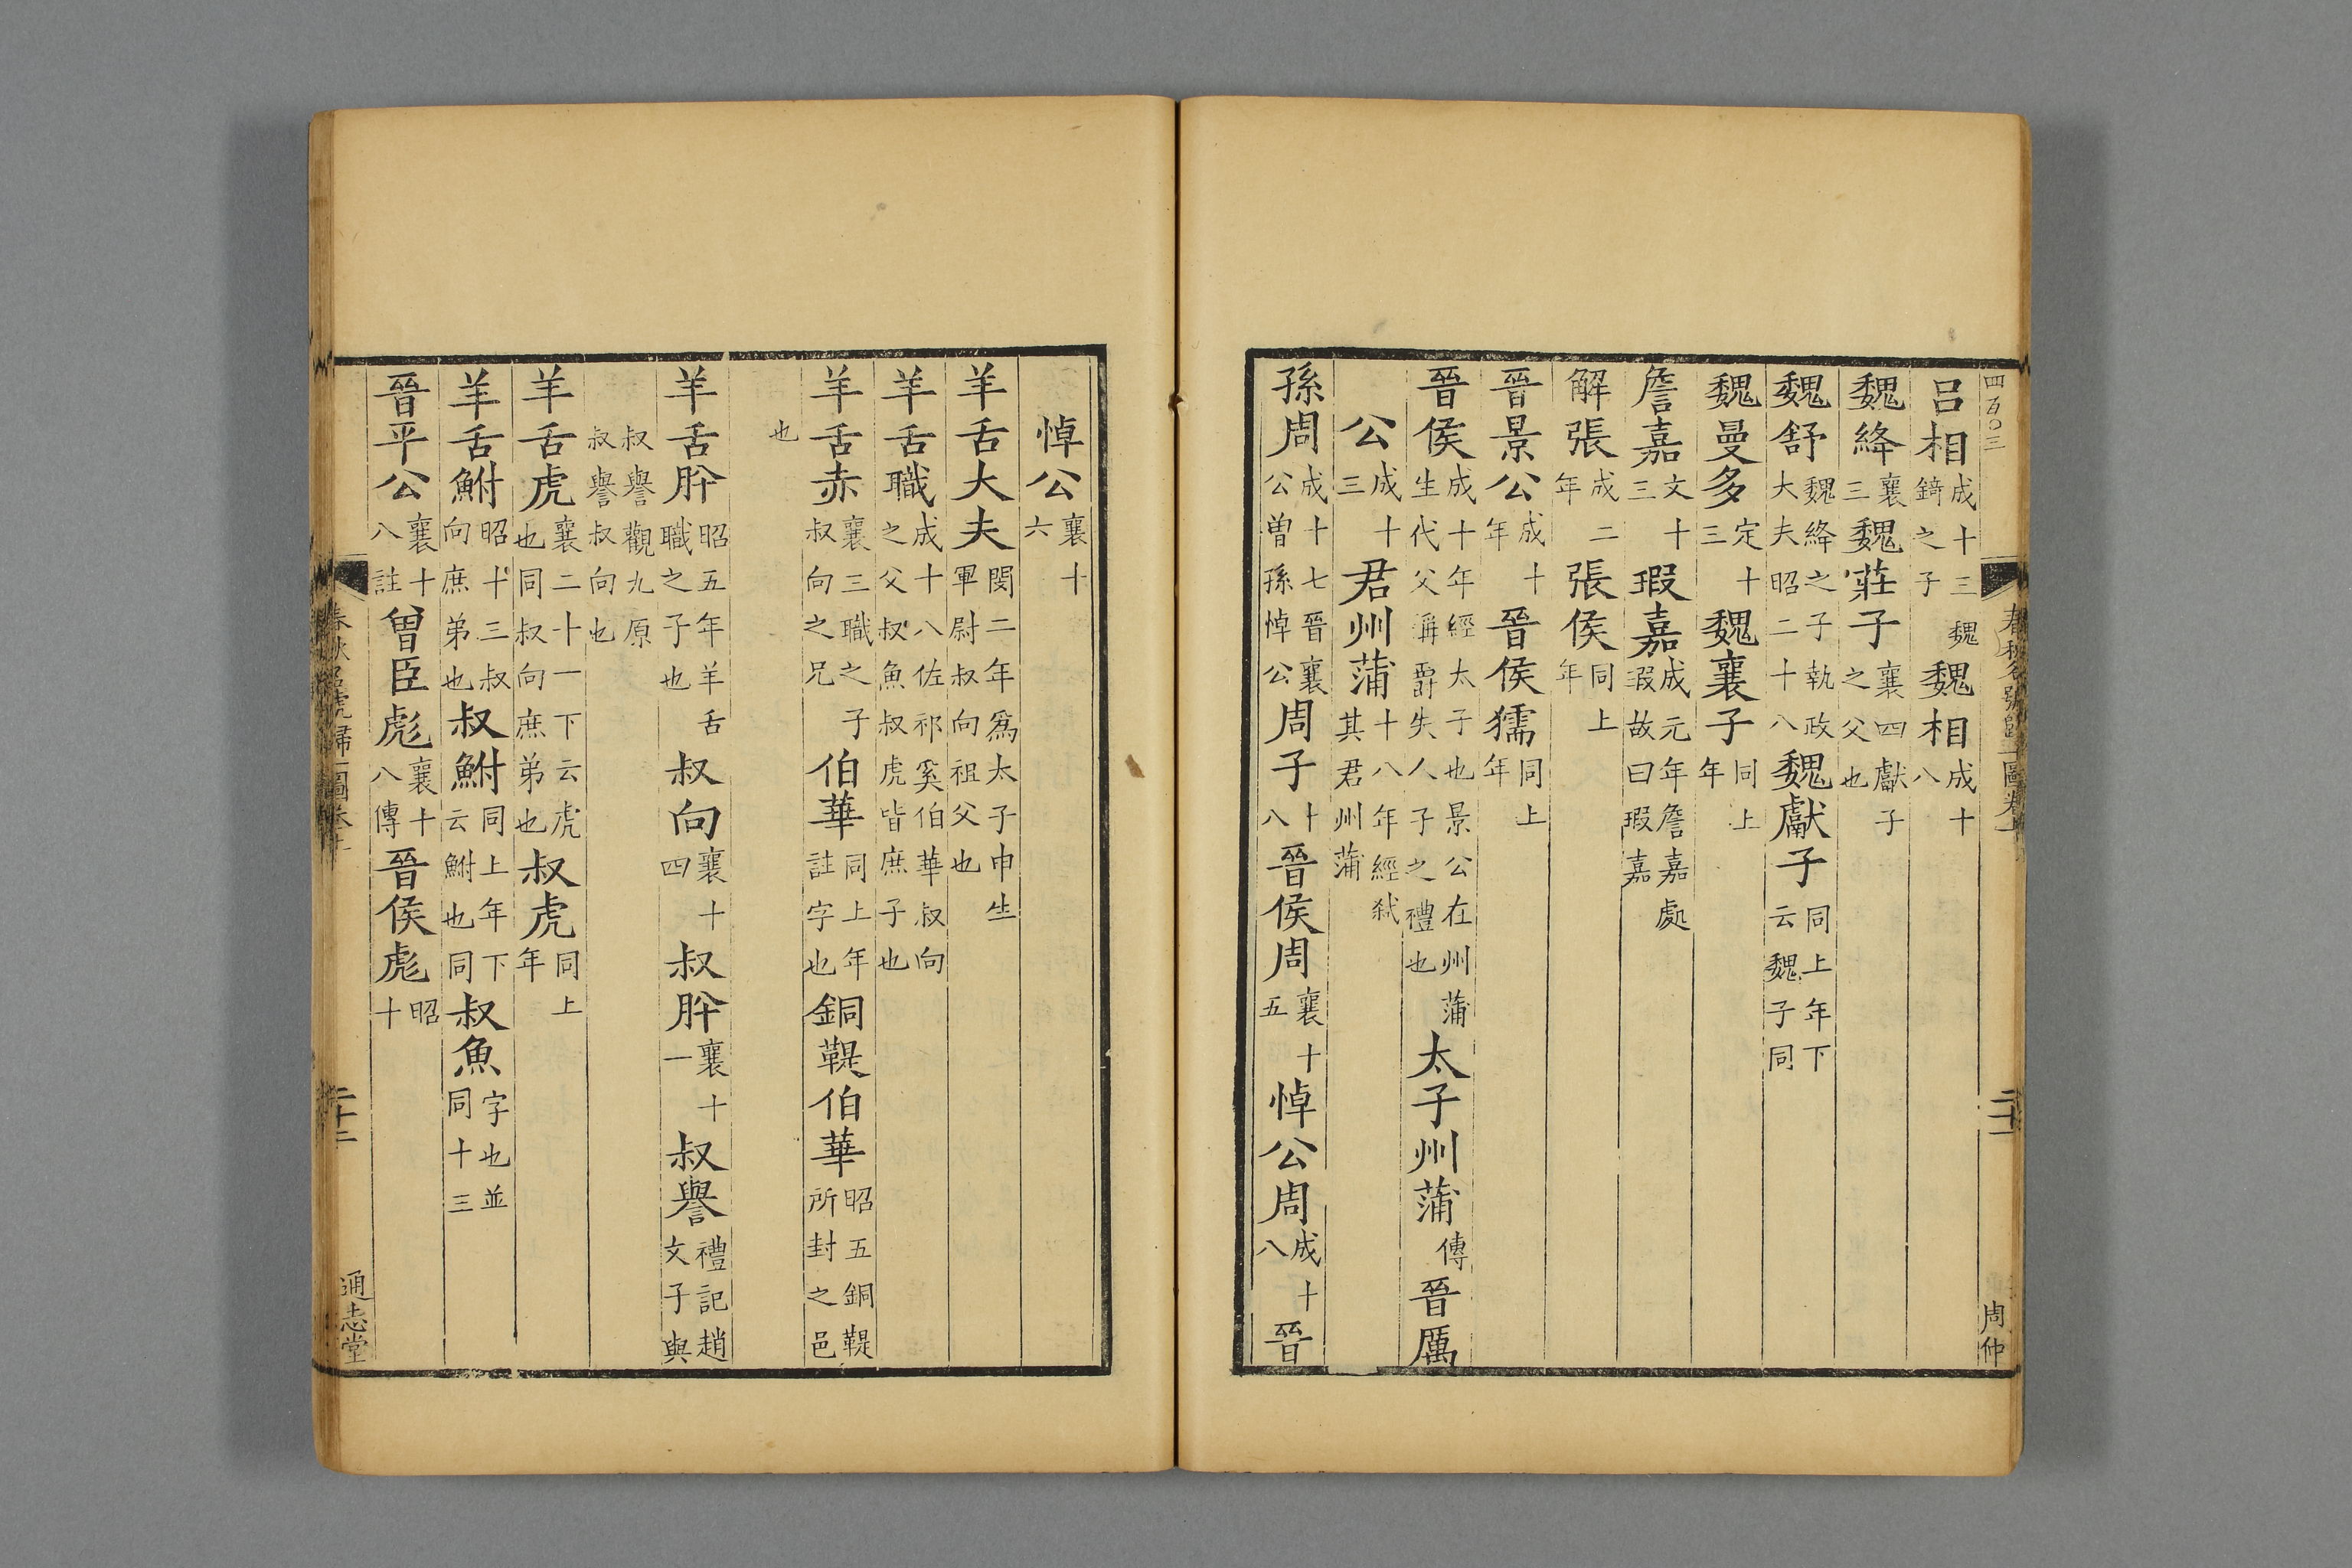 四百〇三
呂相成十三魏錡之子魏相成十八
魏絳襄三魏莊子襄四獻子之父也
魏舒魏絳之子執政大夫昭二十八魏獻子同上年下云魏子同
魏曼多定十三魏襄子同上年
詹嘉文十三瑕嘉成元年詹嘉處瑕故曰瑕嘉
解張成二年張侯同上年
晉景公成十年晉侯獳同上年
晉侯成十年經太子也景公在州蒲生代父稱爵失人子之禮也太子州蒲傳晉厲
公成十三君州蒲十八年經弑其君州蒲
孫周成十七晉襄公曽孫悼公周子十八晉侯周襄十五悼公周成十八晉
春秋名號歸一圖卷上
二十一
周仲
悼公襄十六
羊舌大夫閔二年爲太子申生軍尉叔向祖父也
羊舌職成十八佐祁奚伯華叔向之父叔魚叔虎皆庶子也
羊舌赤襄三職之子叔向之兄伯華同上年註字也銅鞮伯華昭五銅鞮所封之邑
也
羊舌肸昭五年羊舌職之子也叔向襄十四叔肸襄十一叔譽禮記趙文子與
叔譽觀九原叔譽叔向也
羊舌虎襄二十一下云虎也同叔向庶弟也叔虎同上年
羊舌鮒昭十三叔向庶弟也叔鮒同上年下云鮒也同叔魚字也並同十三
晉平公襄十八註曾臣彪襄十八傳晉侯彪昭十
春秋名號歸一圖卷上
二十二
通志堂